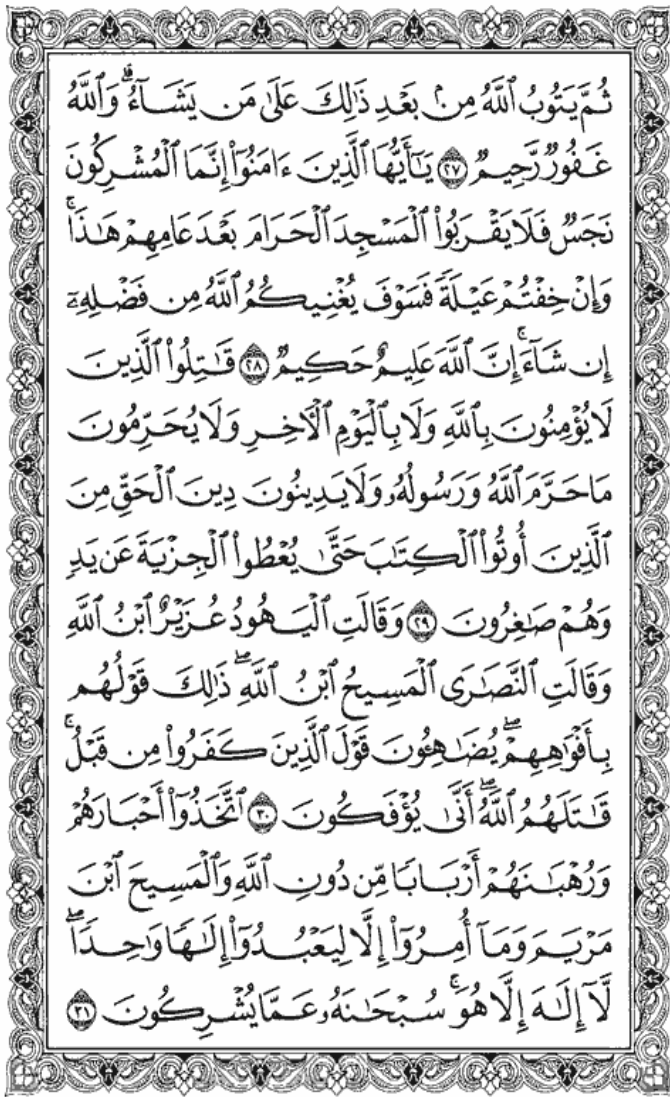 ثُمَّ يَتُوبُ ٱللَّهُ مِنۢ بَعْدِ ذَٰلِكَ عَلَىٰ مَن يَشَآءُ ۗ وَٱللَّهُ
غَفُورٌ رَّحِيمٌ ٢٧ يَٰٓأَيُّهَا ٱلَّذِينَ ءَامَنُوٓا۟ إِنَّمَا ٱلْمُشْرِكُونَ
نَجَسٌ فَلَا يَقْرَبُوا۟ ٱلْمَسْجِدَ ٱلْحَرَامَ بَعْدَ عَامِهِمْ هَٰذَا ۚ
وَإِنْ خِفْتُمْ عَيْلَةً فَسَوْفَ يُغْنِيكُمُ ٱللَّهُ مِن فَضْلِهِۦٓ
إِن شَآءَ ۚ إِنَّ ٱللَّهَ عَلِيمٌ حَكِيمٌ ٢٨ قَٰتِلُوا۟ ٱلَّذِينَ
لَا يُؤْمِنُونَ بِٱللَّهِ وَلَا بِٱلْيَوْمِ ٱلْءَاخِرِ وَلَا يُحَرِّمُونَ
مَا حَرَّمَ ٱللَّهُ وَرَسُولُهُۥ وَلَا يَدِينُونَ دِينَ ٱلْحَقِّ مِنَ
ٱلَّذِينَ أُوتُوا۟ ٱلْكِتَٰبَ حَتَّىٰ يُعْطُوا۟ ٱلْجِزْيَةَ عَن يَدٍ
وَهُمْ صَٰغِرُونَ ٢٩ وَقَالَتِ ٱلْيَهُودُ عُزَيْرٌ ٱبْنُ ٱللَّهِ
وَقَالَتِ ٱلنَّصَٰرَى ٱلْمَسِيحُ ٱبْنُ ٱللَّهِ ۖ ذَٰلِكَ قَوْلُهُم
بِأَفْوَٰهِهِمْ ۖ يُضَٰهِـُٔونَ قَوْلَ ٱلَّذِينَ كَفَرُوا۟ مِن قَبْلُ ۚ
قَٰتَلَهُمُ ٱللَّهُ ۖ أَنَّىٰ يُؤْفَكُونَ ٣٠ ٱتَّخَذُوٓا۟ أَحْبَارَهُمْ
وَرُهْبَٰنَهُمْ أَرْبَابًا مِّن دُونِ ٱللَّهِ وَٱلْمَسِيحَ ٱبْنَ
مَرْيَمَ وَمَآ أُمِرُوٓا۟ إِلَّا لِيَعْبُدُوٓا۟ إِلَٰهًا وَٰحِدًا ۖ
لَّآ إِلَٰهَ إِلَّا هُوَ ۚ سُبْحَٰنَهُۥ عَمَّا يُشْرِكُونَ ٣١